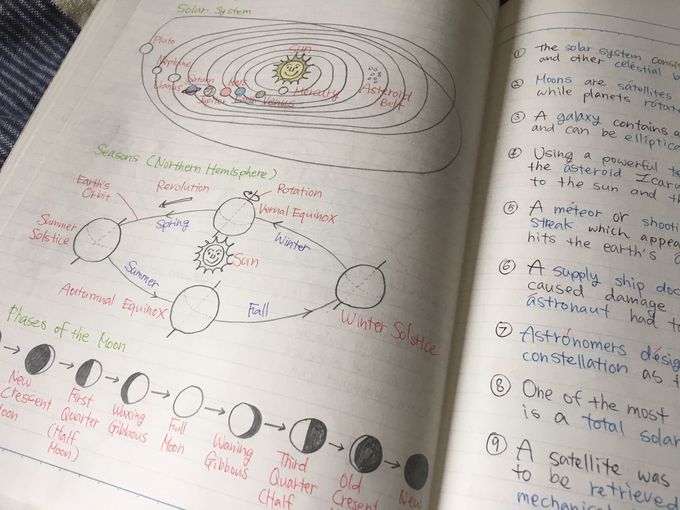 Solar System
Pluto
Neptune
Uranus
Saturn
Jupiter
Mars
Earth
Venus
Mercury
Sun
Asteroid
Belt
Seasons (Northern Hemisphere)
Earth's
Orbit
Revolution
Rotation
Vernal Equinox
Spring
Winter
Summer
Solstice
Sun
Summer
Autumnal Equinox
Fall
Winter Solstice
Phases of the Moon
New
Crescent
Moon
First
Quarter
(Half
Moon)
Waxing
Gibbous
Full
Moon
Waning
Gibbous
Third
Quarter
(Half
Old
Cresent
New
① The solar system
and other celestial
② Moons are satellites
while planets
③ A galaxy contains
and can be
④ Using a powerful
the asteroid
to the sun and
⑤ A meteor or
streak which
hits the earth's
⑥ A supply ship
caused damage
astronaut had
⑦ Astronomers
constellation as
⑧ One of the most
is a total
⑨ A satellite was
to be retrieved